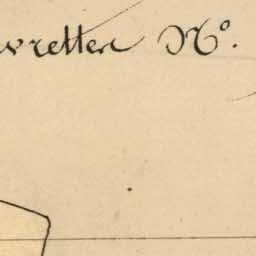 vretten Nº.